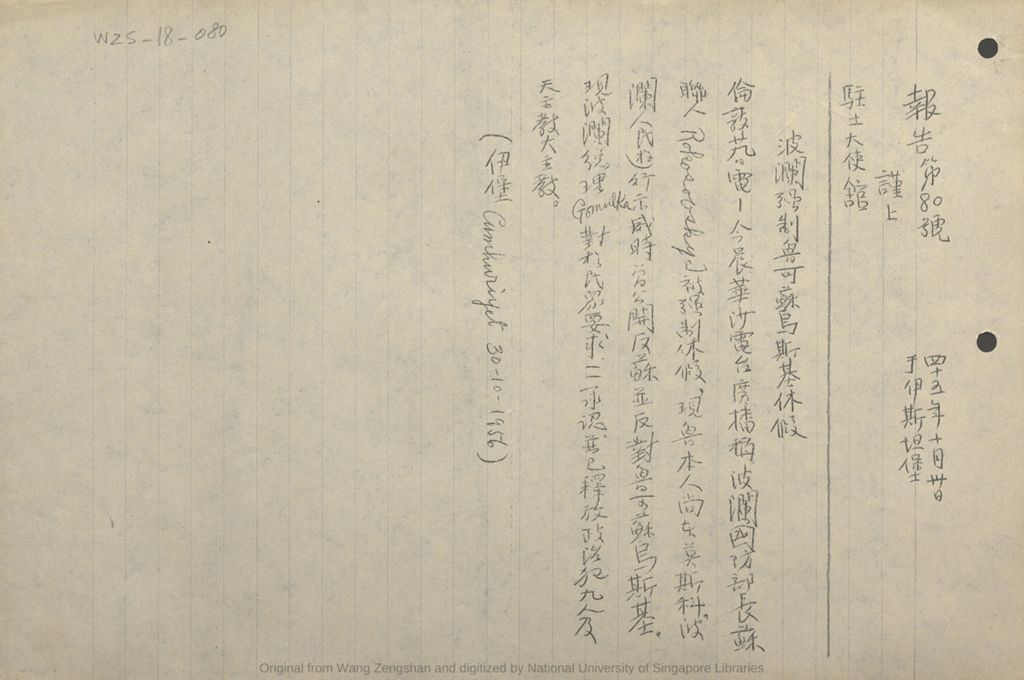 WZS-18-080
報告第80號
四十五年十月卅日
于伊斯坦堡
謹上
駐土大使舘
波瀾强制魯可蘇烏斯基休假
倫敦廿九日電—今晨華沙電台廣播稱波瀾國防部長蘇
聯人Rokosovsky已被强制休假,現魯本人尚在莫斯科。波
瀾人民遊行示威時曾公開反蘇並反對魯可蘇烏斯基。
現波瀾總理Gomulka對於民眾要求一一承認並已釋放政治犯九人及
天主教大主教。
(伊堡 Cumhuriyet 30-10-1956)
Original from Wang Zengshan and digitized by National University of Singapore Libraries